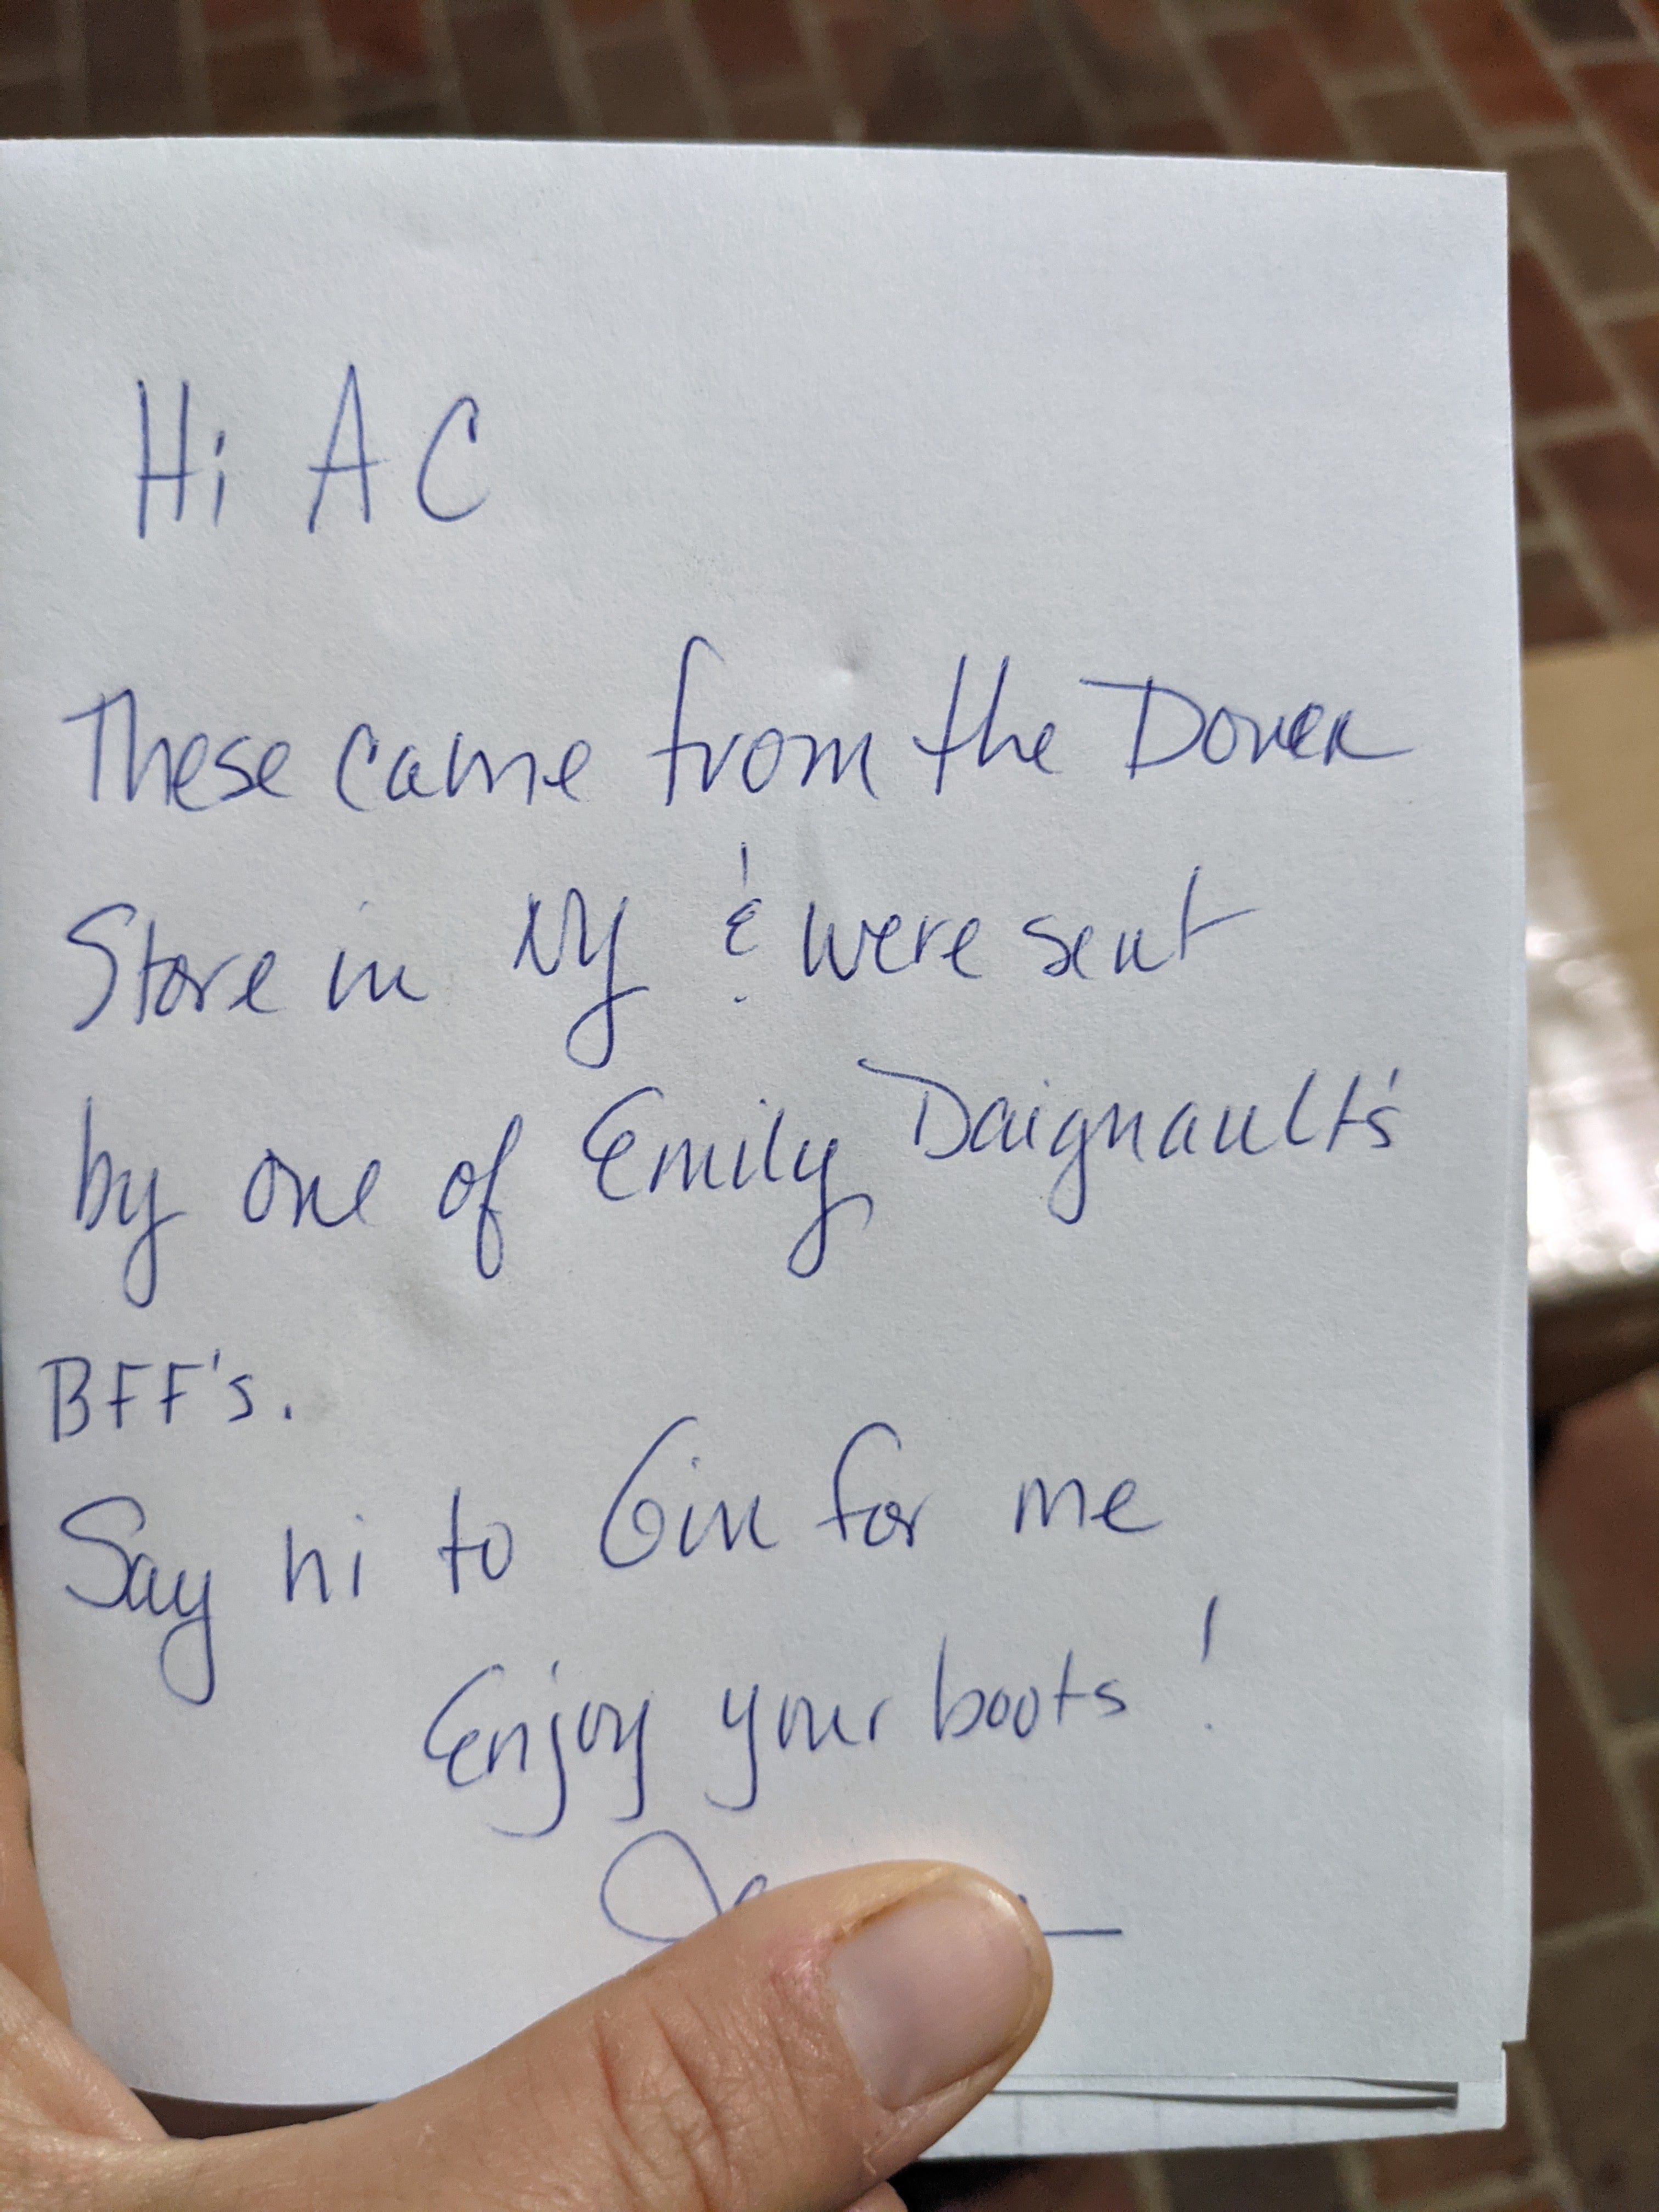 Hi AC
These came from the Dover
Store in NY & were sent
by one of Emily Daignault's
BFF's.
Say hi to Gin for me
Enjoy your boots!